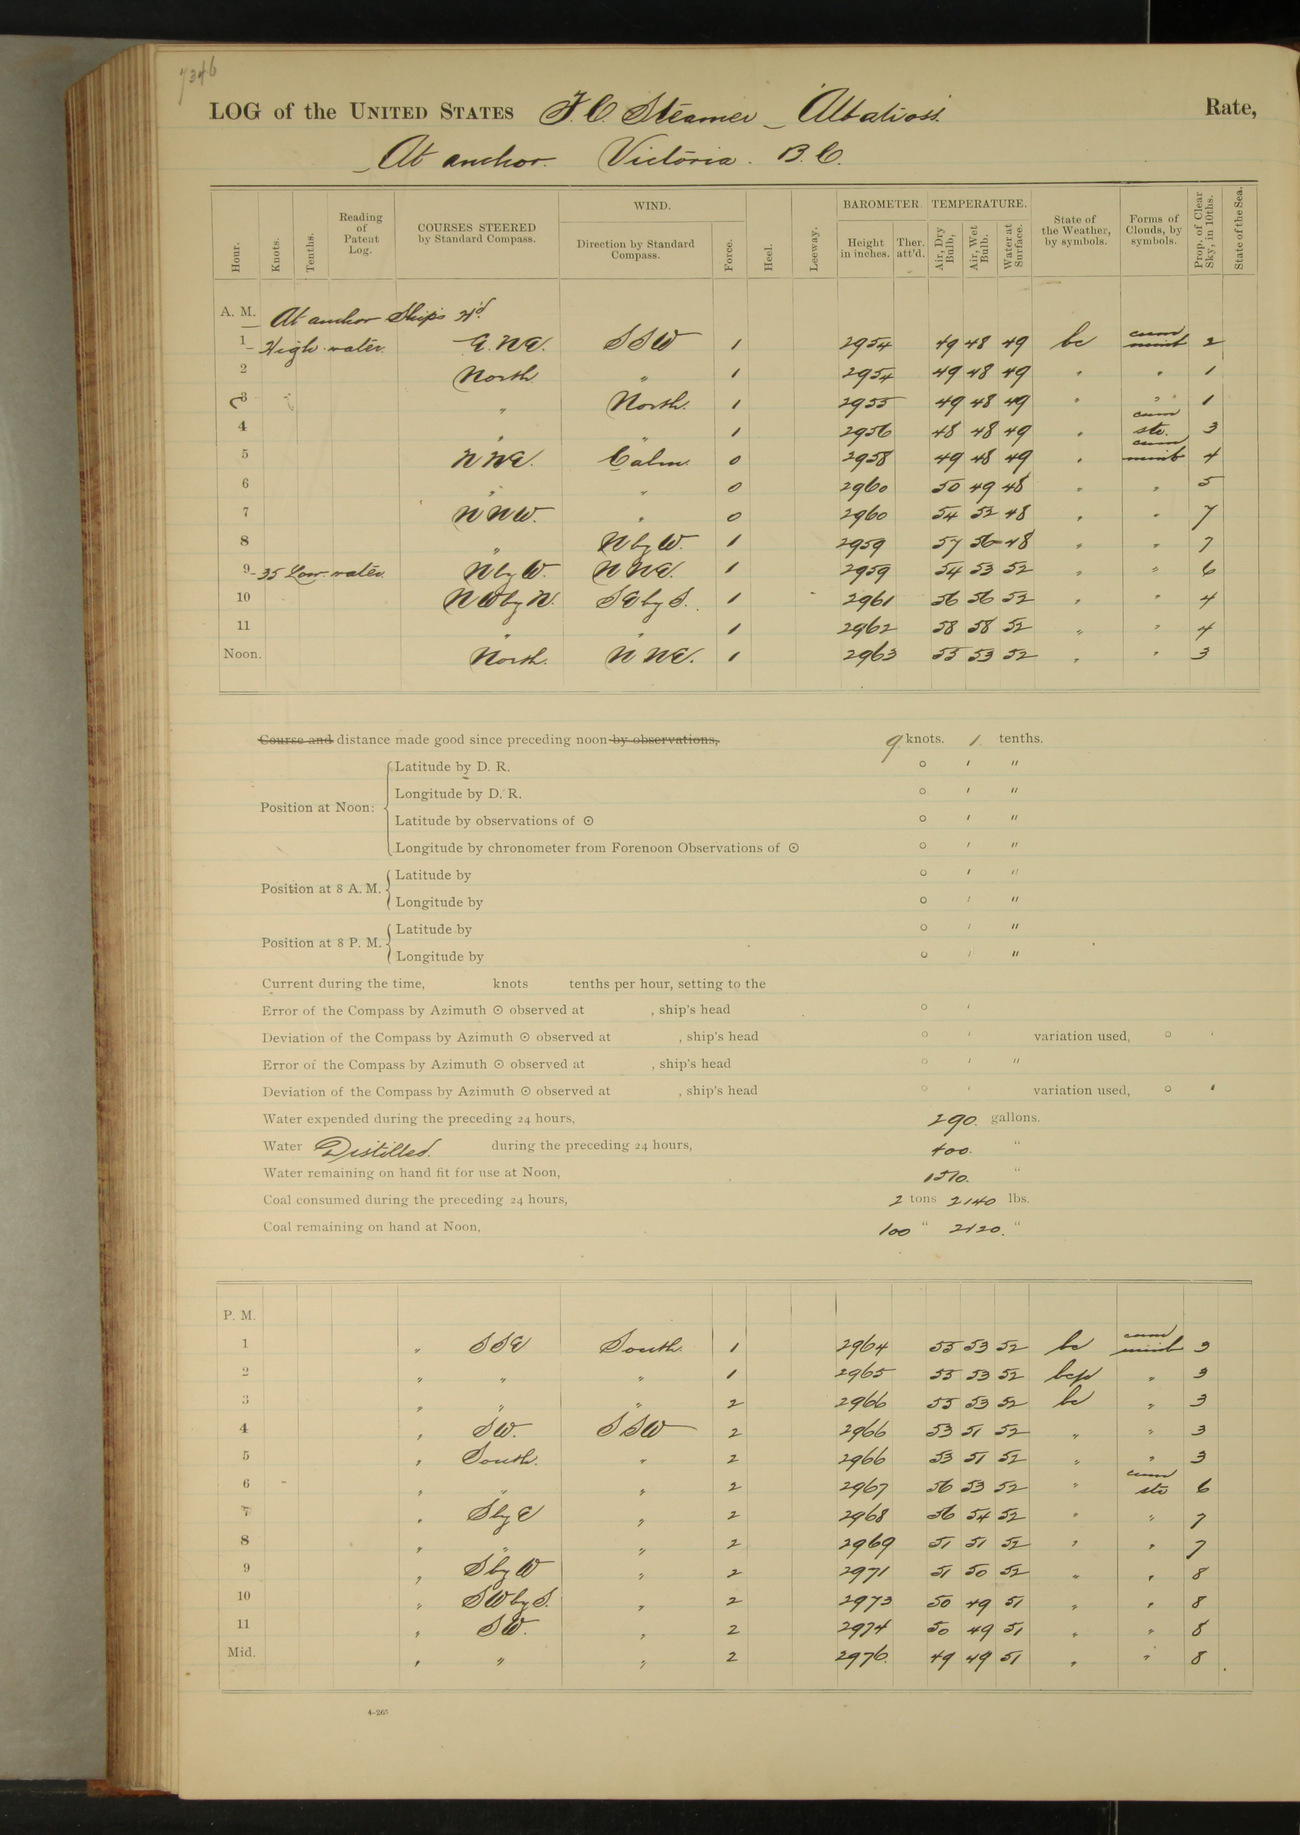 7346
LOG of the UNITED STATES F. C. Steamer Albatross Rate,
At anchor. Victoria. B. C.
Hour. Knots. Tenths. Reading of Patent Log. COURSES STEERED by Standard Compass. WIND. Direction by Standard Compass. Force. Heel. Leeway. BAROMETER. Height in inches. Ther. att'd. TEMPERATURE. Air, Dry Bulb, Air, Wet Bulb. Water at Surface. State of the Weather, by symbols. Forms of Clouds, by symbols. Prop. of Clear Sky, in 10ths. State of the Sea.
A. M. At anchor Ships H'd
1 High water E.N.E. SSW 1 2954 49 48 49 bc cum nimb 2
2 North " 1 2954 49 48 49 " " 1
3 " North. 1 2955 49 48 49 " " 1
4 " " 1 2956 48 48 49 " cum str. 3
5 NNE. Calm. 0 2958 49 48 49 " cum nimb 4
6 " " 0 2960 50 49 48 " " 5
7 NNW. " 0 2960 54 52 48 " " 7
8 " N by W. 1 2959 57 56 48 " " 7
9 35 Low water. N by W. NNE. 1 2959 54 53 52 " " 6
10 NW by N. SE by S. 1 2961 56 56 52 " " 4
11 " " 1 2962 58 58 52 " " 4
Noon. North. NNE. 1 2963 55 53 52 " " 3
Course and distance made good since preceding noon by observations, 9 knots. 1 tenths.
Position at Noon:
Latitude by D. R. ° ′ ″
Longitude by D. R. ° ′ ″
Latitude by observations of ☉ ° ′ ″
Longitude by chronometer from Forenoon Observations of ☉ ° ′ ″
Position at 8 A. M.
Latitude by ° ′ ″
Longitude by ° ′ ″
Position at 8 P. M.
Latitude by ° ′ ″
Longitude by ° ′ ″
Current during the time, knots tenths per hour, setting to the
Error of the Compass by Azimuth ☉ observed at , ship's head ° ′
Deviation of the Compass by Azimuth ☉ observed at , ship's head ° ′ variation used, ° ′
Error of the Compass by Azimuth ☉ observed at , ship's head ° ′ ″
Deviation of the Compass by Azimuth ☉ observed at , ship's head ° ′ variation used, ° ′
Water expended during the preceding 24 hours, 290. gallons.
Water Distilled during the preceding 24 hours, 400. "
Water remaining on hand fit for use at Noon, 1570. "
Coal consumed during the preceding 24 hours, 2 tons 2140 lbs.
Coal remaining on hand at Noon, 100 " 2120. "
P. M.
1 " SSE South. 1 2964 55 53 52 bc cum nimb 3
2 " " " 1 2965 55 53 52 bcp " 3
3 " " " 2 2966 55 53 52 bc " 3
4 " SW. SSW 2 2966 53 51 52 " " 3
5 " South. " 2 2966 53 51 52 " " 3
6 " " " 2 2967 56 53 52 " cum str 6
7 " S by E " 2 2968 56 54 52 " " 7
8 " " " 2 2969 51 51 52 " " 7
9 " S by W " 2 2971 51 50 52 " " 8
10 " SW by S. " 2 2973 50 49 51 " " 8
11 " SW. " 2 2974 50 49 51 " " 8
Mid. " " " 2 2976. 49 49 51 " " 8
4-265